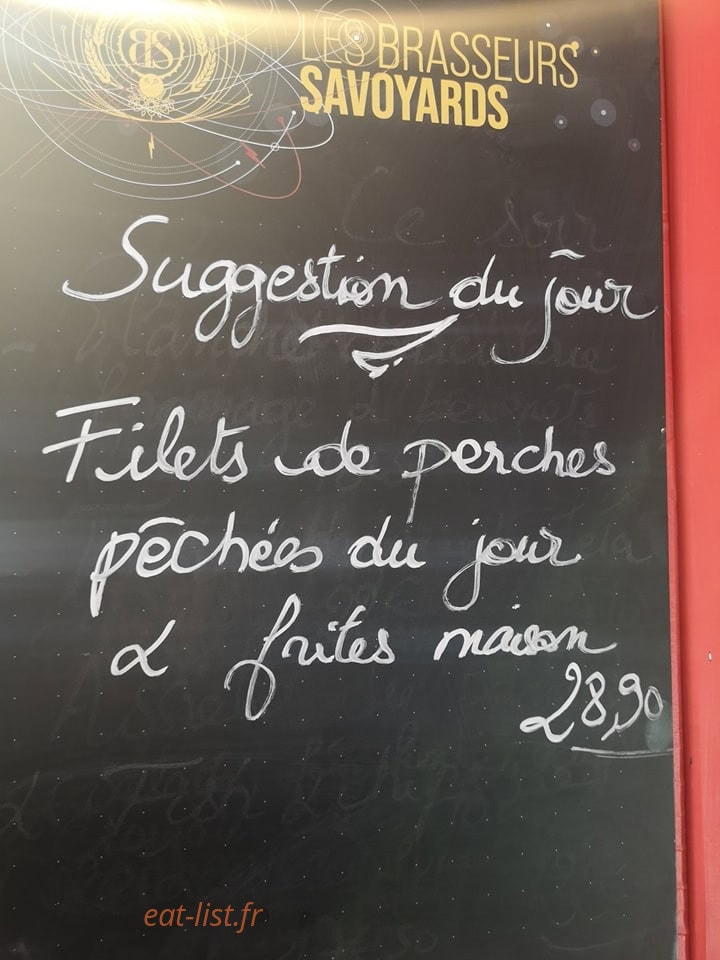 BS
LES BRASSEURS
SAVOYARDS
Ce soir
Suggestion du jour
Filets de perches
pêchées du jour
& frites maison
28,90
eat-list.fr